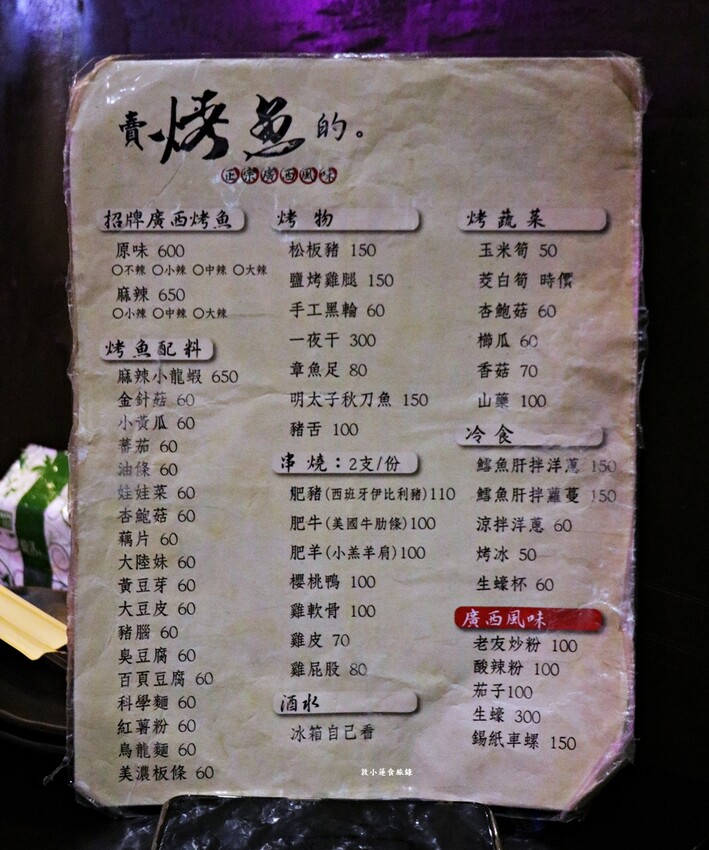 賣烤魚的。
正宗廣西風味
招牌廣西烤魚
原味 600
○不辣 ○小辣 ○中辣 ○大辣
麻辣 650
○小辣 ○中辣 ○大辣
烤魚配料
麻辣小龍蝦 650
金針菇 60
小黃瓜 60
蕃茄 60
油條 60
娃娃菜 60
杏鮑菇 60
藕片 60
大陸妹 60
黃豆芽 60
大豆皮 60
豬腦 60
臭豆腐 60
百頁豆腐 60
科學麵 60
紅薯粉 60
烏龍麵 60
美濃板條 60
烤物
松板豬 150
鹽烤雞腿 150
手工黑輪 60
一夜干 300
章魚足 80
明太子秋刀魚 150
豬舌 100
串燒：2支/份
肥豬(西班牙伊比利豬)110
肥牛(美國牛肋條)100
肥羊(小羔羊肩)100
櫻桃鴨 100
雞軟骨 100
雞皮 70
雞屁股 80
酒水
冰箱自己看
烤蔬菜
玉米筍 50
茭白筍 時價
杏鮑菇 60
櫛瓜 60
香菇 70
山藥 100
冷食
鱈魚肝拌洋蔥 150
鱈魚肝拌蘿蔓 150
涼拌洋蔥 60
烤冰 50
生蠔杯 60
廣西風味
老友炒粉 100
酸辣粉 100
茄子100
生蠔 300
錫紙車螺 150
段小蓮食旅錄